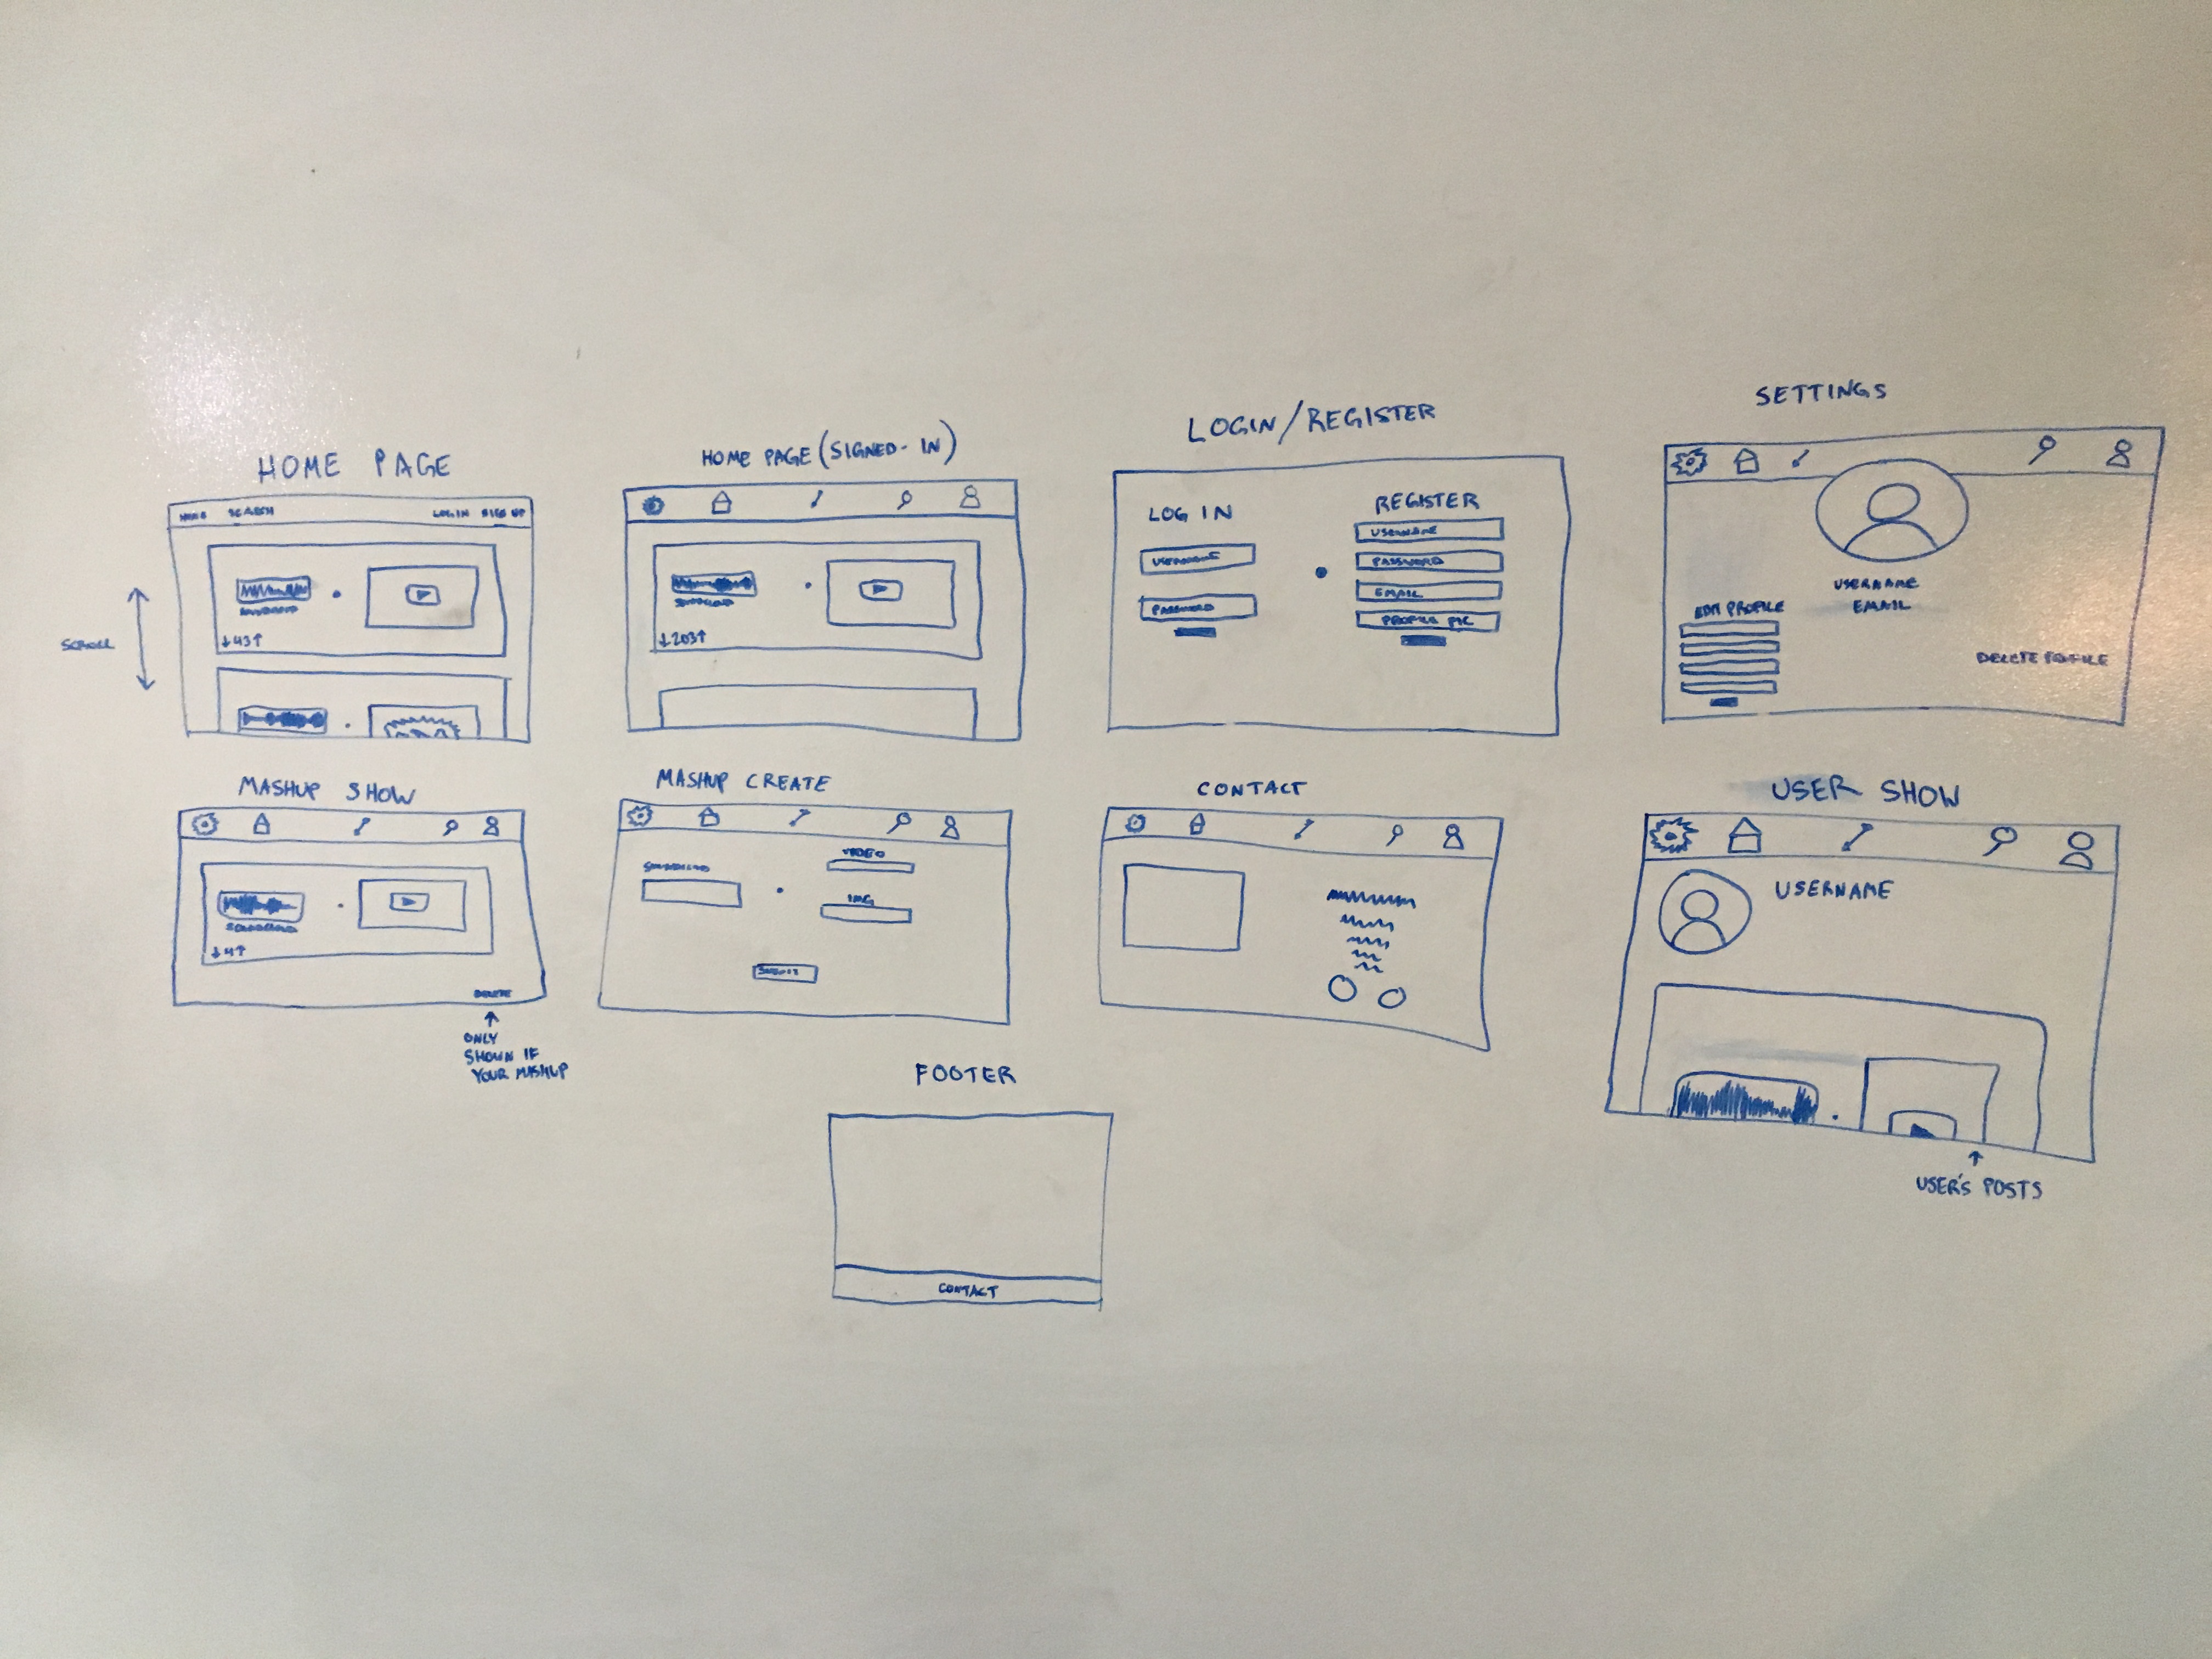 HOME PAGE
HOME SEARCH LOGIN SIGN UP
SOUNDCLOUD
↓43↑
SCROLL
HOME PAGE (SIGNED-IN)
SOUNDCLOUD
↓203↑
LOGIN/REGISTER
LOG IN
USERNAME
PASSWORD
REGISTER
USERNAME
PASSWORD
EMAIL
PROFILE PIC
SETTINGS
USERNAME
EMAIL
EDIT PROFILE
DELETE PROFILE
MASHUP SHOW
SOUNDCLOUD
↓4↑
DELETE
ONLY
SHOWN IF
YOUR MASHUP
MASHUP CREATE
SOUNDCLOUD
VIDEO
IMG
SUBMIT
CONTACT
USER SHOW
USERNAME
USER'S POSTS
FOOTER
CONTACT